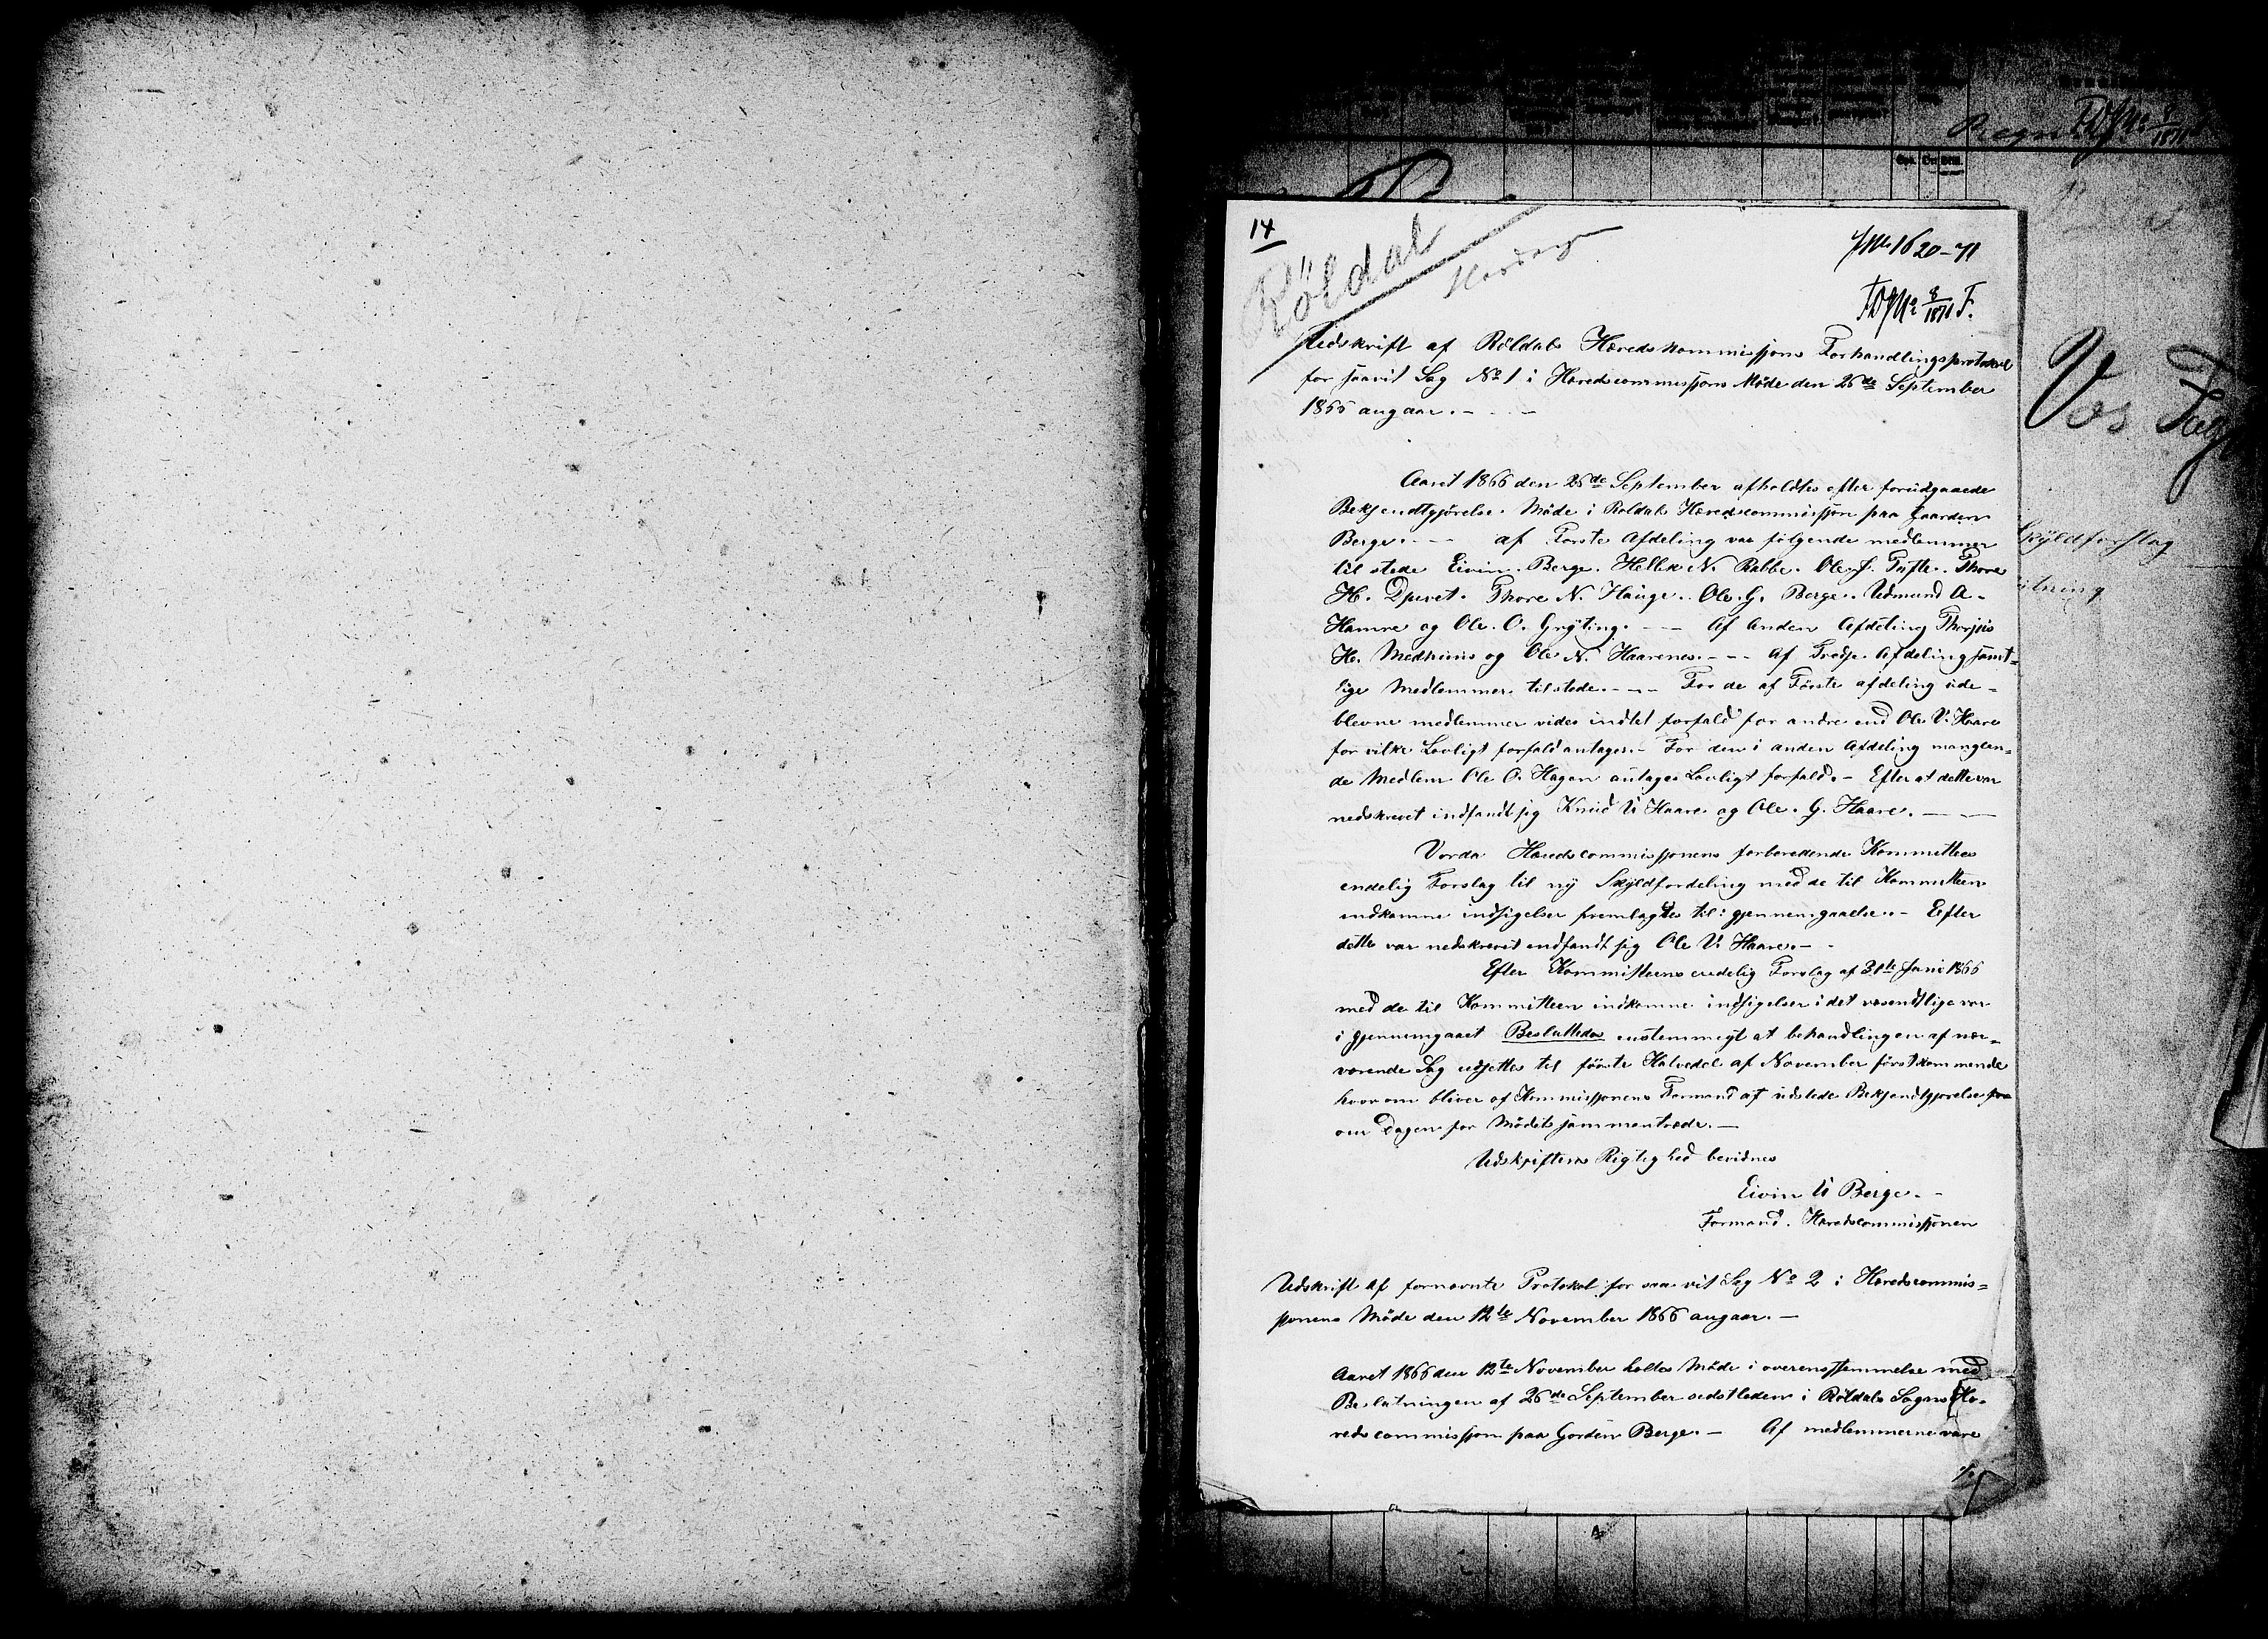 14
Röldal
JNo 1620-71
Udskrift af Röldals Heredskommisjons Forhandlingsprotokol
for saavit Sag No 1 i Heredscommisjons Möde den 26de September
1866 angaar. - - -
Aaret 1866 den 26de September afholdtes efter forudgaaede
Bekjendtgjörelse Möde i Roldals Heredscommisjon paa Gaarden
Berge. - - - af Forste Afdeling var følgende medlemmer
til stede Eivin Berge. Hellik N. Rabbe. Ole J. Tufte. Thore
H. Djuvet. Thore N. Hauge. Ole G. Berge. Udmund A.
Hamre og Ole O. Gryting. - - - Af Anden Afdeling Thorjus
H. Medhuus og Ole N. Haarenes. - - - Af Tredje Afdeling samt-
lige Medlemmer tilstede. - - - For de af Förste afdeling ude-
blevne medlemmer vides indtet forfald for andre end Ole V. Haare
for vilke Lovligt forfald antages. - For den i anden Afdeling manglen-
de Medlem Ole O. Hagen antages Lovligt forfald. - Efter at dette var
nedskrevet indfandt sig Knud V Haare og Ole G. Haare. - -
Vorda Heredscommisjonens forberedende Kommittees
endelig Forslag til ny Skyldfordeling med de til Kommitteen
indkomne indsigelser fremlagdes til gjennemgaaelse. - Eefter
dette var nedskrevet indfandt sig Ole V. Haare. - -
Efter Kommitteens endelig Forslag af 31te Juni 1866
med de til Kommitteen indkomne indsigelser i det væsendtlige var
i gjennemgaaet Besluttedes enstemmigt at behandlingen af nær-
værende Sag udsettes til förste Halvedel af November förstkommende
hvorom bliver af Kommissjonens Formand at udstede Bekjendtgjørelse fra
om Dagen for Mödets sammentræde. -
Udskriftens Rigtighed bevidnes
Eivin V Berge. -
Formand. Heredscommissjonen
Udskrift af fornævnte Protokol for saa vit Sag No 2 i Heredscommis-
sjonens Möde den 12te November 1866 angaar. -
Aaret 1866 den 12te November holdes Möde i overensstemmelse med
Beslutningen af 26de September sidstleden i Röldals Sogns He-
redscommissjon paa Gorden Berge. - Af medlemmerne vare
Vos